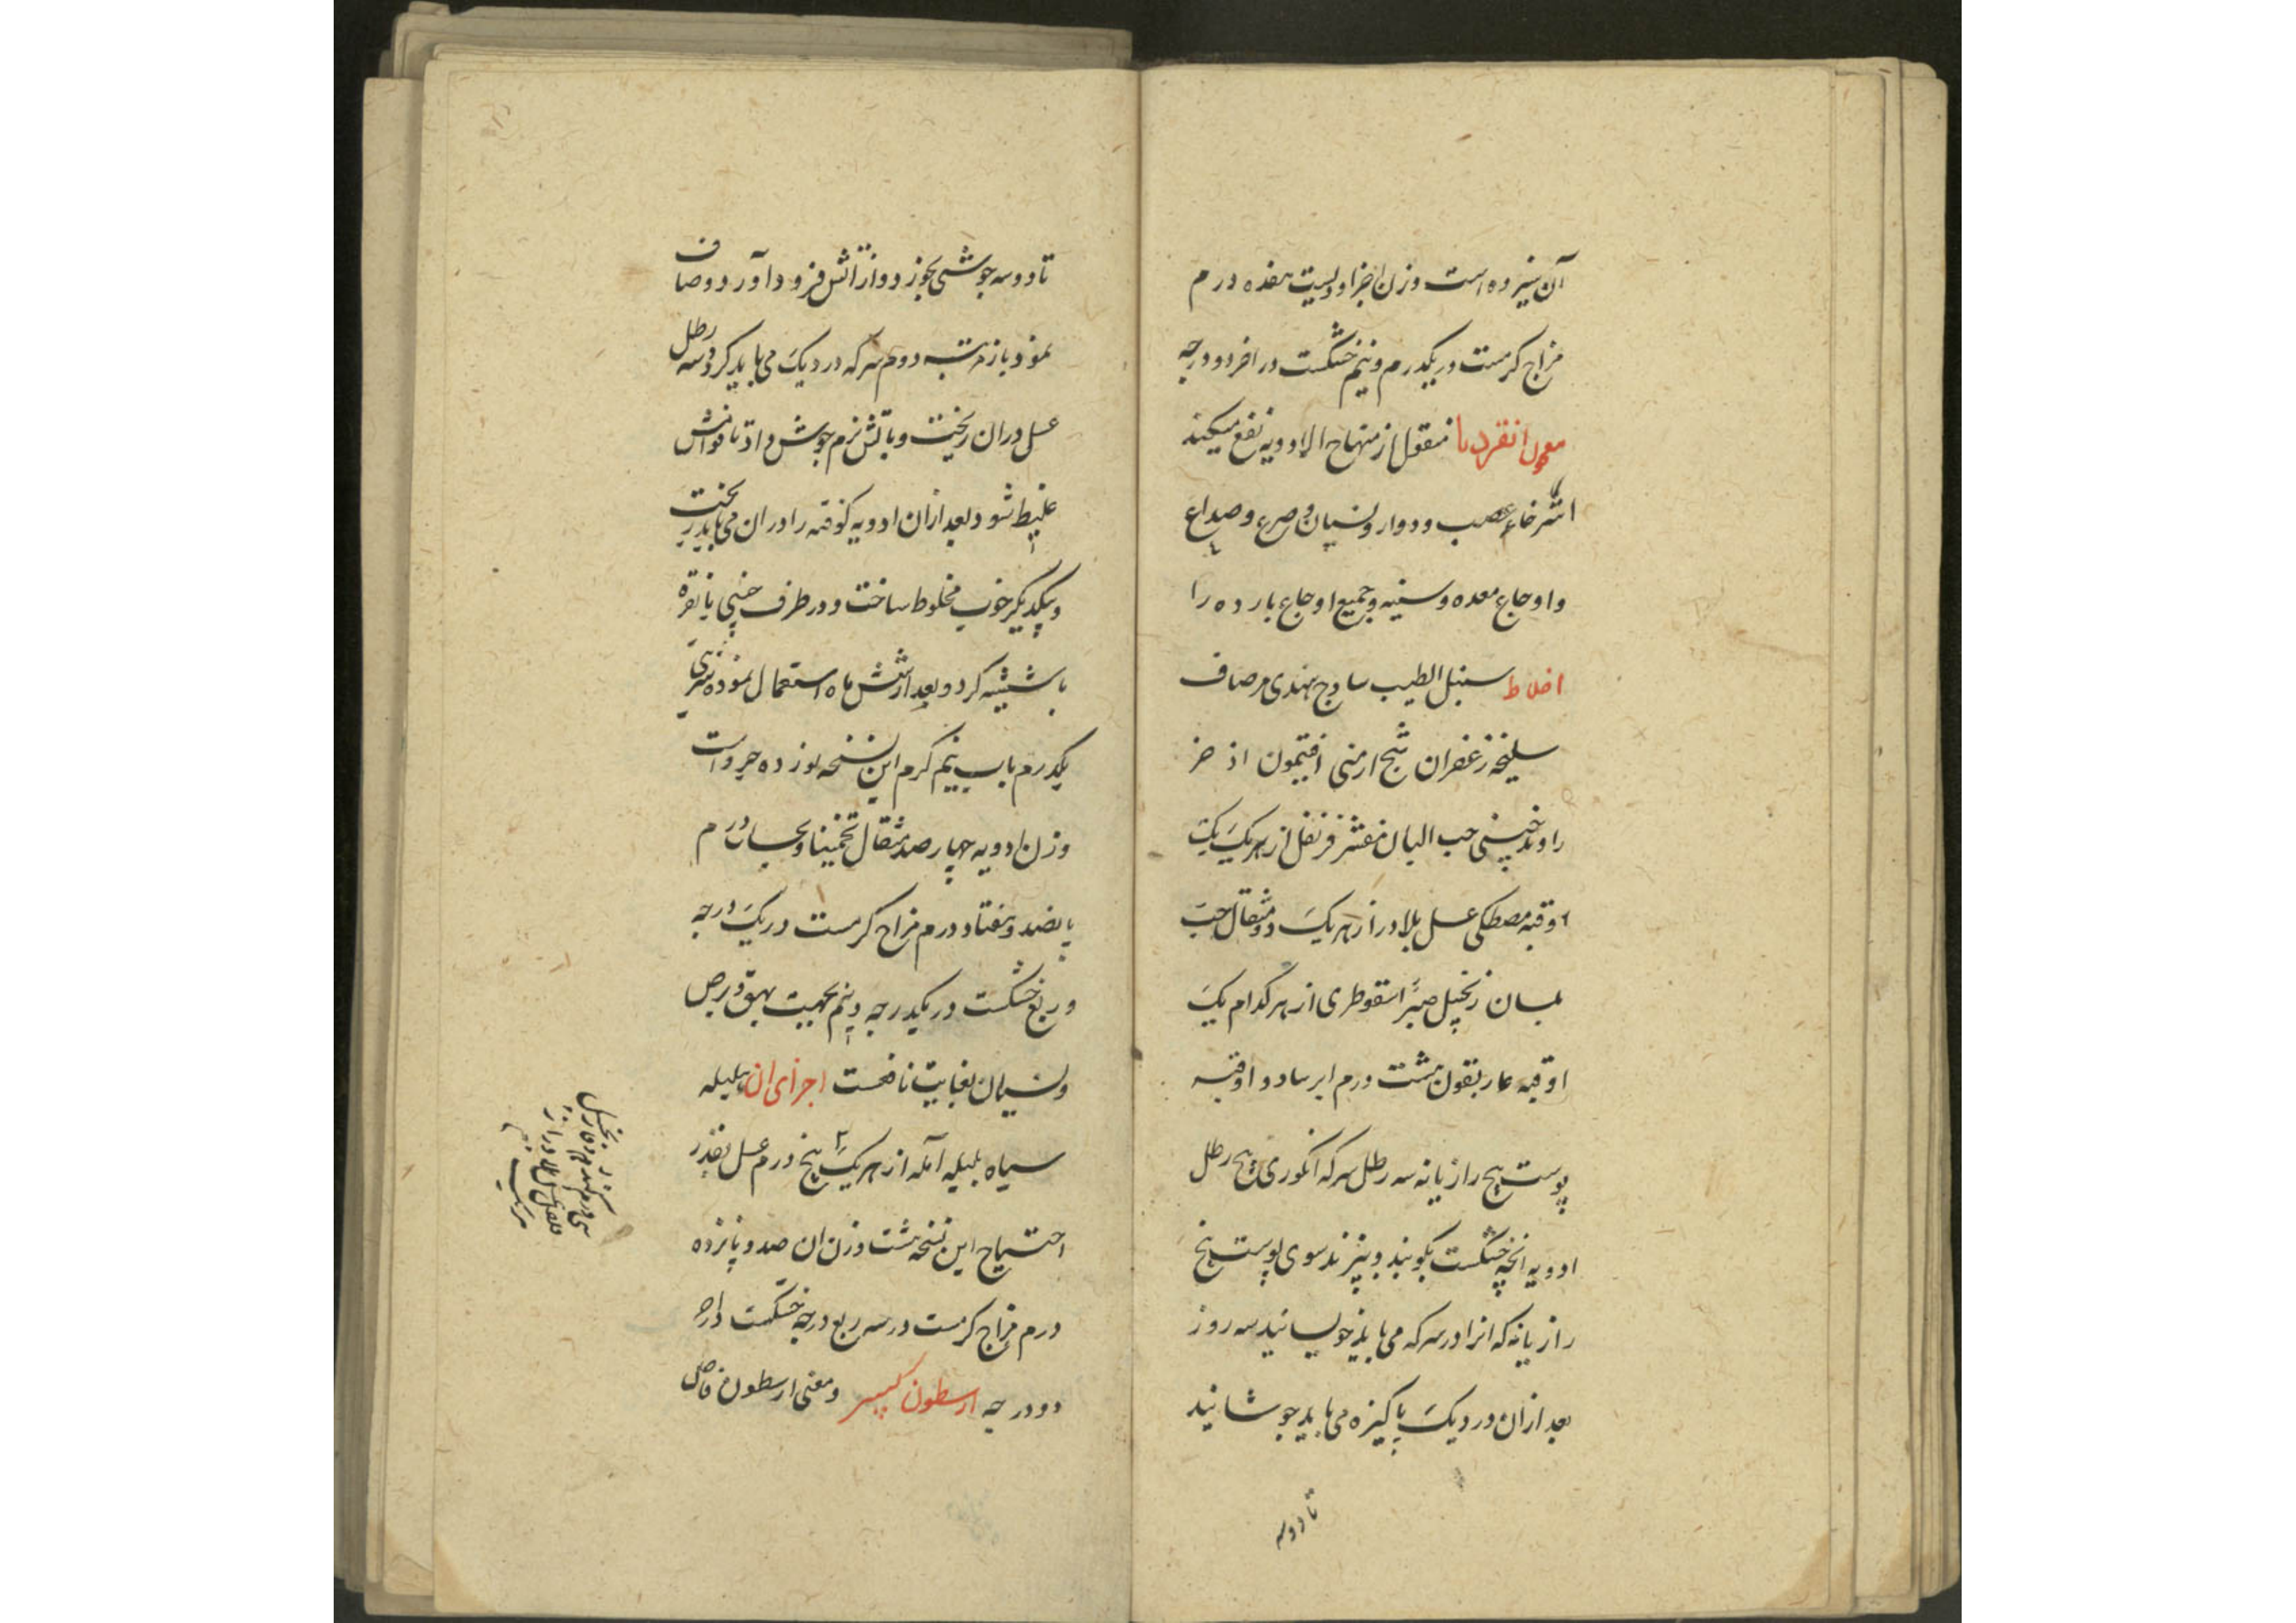 آن سیزده است وزن اجزا دویست هفده درم
مزاج گرمست در یکدرم و نیم خشکست در اخر دو درجه
معجون انقردیا منقول از منهاج الادویه نفع میکند
استرخاء عصب و دوار و نسیان و صرع و صداع
و اوجاع معده و سینه و جمیع اوجاع بارده را
اخلاط سنبل الطیب ساذج هندی مر صاف
سلیخه زعفران شیح ارمنی افتیمون اذخر
راوند چینی حب البان مقشر قرنفل از هر یک یک
اوقیه مصطکی عسل بلادر از هر یک دو مثقال حب
بلسان زنجبیل صبر اسقوطری از هر کدام یک
اوقیه غاریقون هشت درم ایرسا دو اوقیه
پوست بیخ رازیانه سه رطل سرکه انگوری پنج رطل
ادویه انچه خشکست بکوبند و بپزند سوی پوست بیخ
رازیانه که انرا در سرکه می باید خویسانید سه روز
بعد ازان در دیک پاکیزه می باید جوشانید
تا دو سه
تا دو سه جوشی بخورد و از اتش فرود آورد و صاف
نمود باز مرتبه دوم سرکه در دیک می باید کرد و سه رطل
عسل دران ریخت و باتش نرم جوش داد تا قوامش
غلیظ شود بعد ازان ادویه کوفته را دران می باید ریخت
و بیکدیگر خوب مخلوط ساخت و در ظرف چینی یا نقره
یا شیشه کرد و بعد از شش ماه استعمال نمود شربتی
یکدرم باب نیم گرم این نسخه نوزده جزو است
وزن ادویه چهار صد مثقال تخمینا و بحساب درم
پانصد و هفتاد درم مزاج گرمست در یک درجه
و ربع خشکست در یکدرجه و نیم بجهت بهق و برص
و نسیان بغایت نافعست اجزای ان هلیله
سیاه بلیله آمله از هر یک پنج درم عسل بقدر
احتیاج این نسخه هشت وزن ان صد و پانزده
درم مزاج گرمست در سه ربع درجه خشکست در
دو درجه ارسطون کبیر و معنی ارسطون فاضل
زنجبیل
فلفل عسل بلادر از